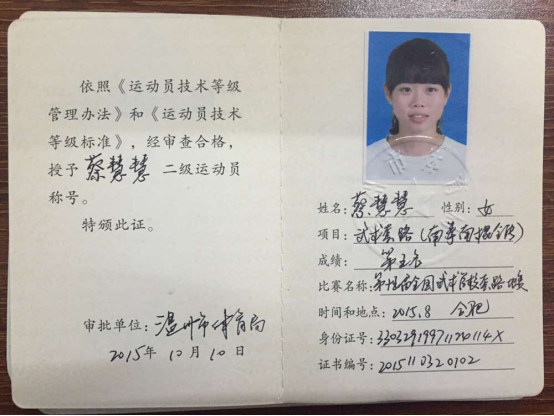 依照《运动员技术等级
管理办法》和《运动员技术
等级标准》，经审查合格，
授予 蔡慧慧 二级运动员
称号。
特颁此证。
审批单位：温州市体育局
2015年 10月 10日
姓名：蔡慧慧 性别：女
项目：武术套路（南拳南棍全能）
成绩：第五名
比赛名称：全国武术学校套路比赛
时间和地点：2015.8 合肥
身份证号：
证书编号：2015110320102